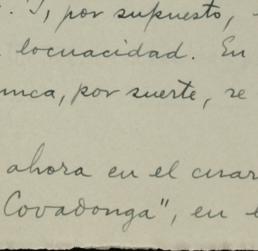 Y, por supuesto,
locuacidad. En
unca, por suerte, se
ahora en el cuar
Covadonga", en e